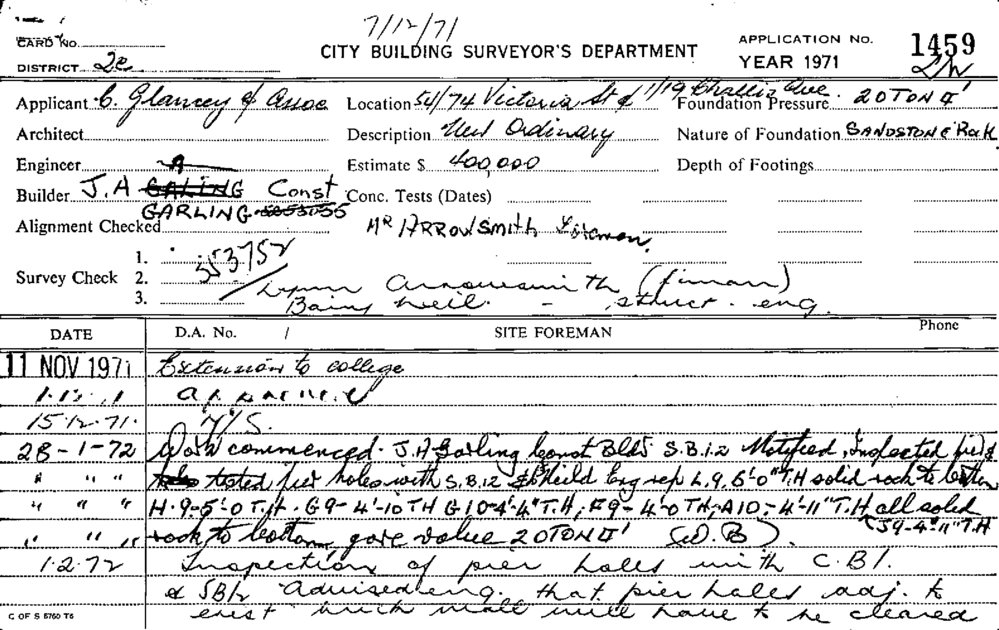 7/12/71
CARD No.
CITY BUILDING SURVEYOR'S DEPARTMENT
APPLICATION No. 1459
DISTRICT 2e
YEAR 1971
Applicant C. Glancey & Assoc Location 54/74 Victoria St & 1/19 Challis Ave. Foundation Pressure 20 TON □'
Architect Description New Ordinary Nature of Foundation SANDSTONE Rock
Engineer Estimate $ 400,000 Depth of Footings
Builder J.A GALING Const Conc. Tests (Dates)
GARLING
Alignment Checked MR ARROWSMITH Foreman
1.
Survey Check 2. 353752
3.
Lynn Arrowsmith (firman)
struct. eng.
DATE D.A. No. / SITE FOREMAN Phone
11 NOV 1971 Extension to college
15.12.71. N/S.
28-1-72 Work commenced. J.A Garling Const Bldr S.B.12 Notified, Inspected piers
" " " tested pier holes with S.B.12 & Eng rep L.9, 6'-0" T.H solid rock to bottom
" " " H.9-5'-0 T.H. G9-4'-10 TH G10-4'-4" T.H, F9-4'-0 TH, A10,-4'-11" T.H all solid
J9-4'-11" T.H
" " " rock to bottom gave value 20 TON □' (W.B).
1.2.72 Inspection of pier holes with C.B1.
& SB12 Advised eng. that pier holes adj. to
exist brick wall will have to be cleared
C OF S 5760 T5